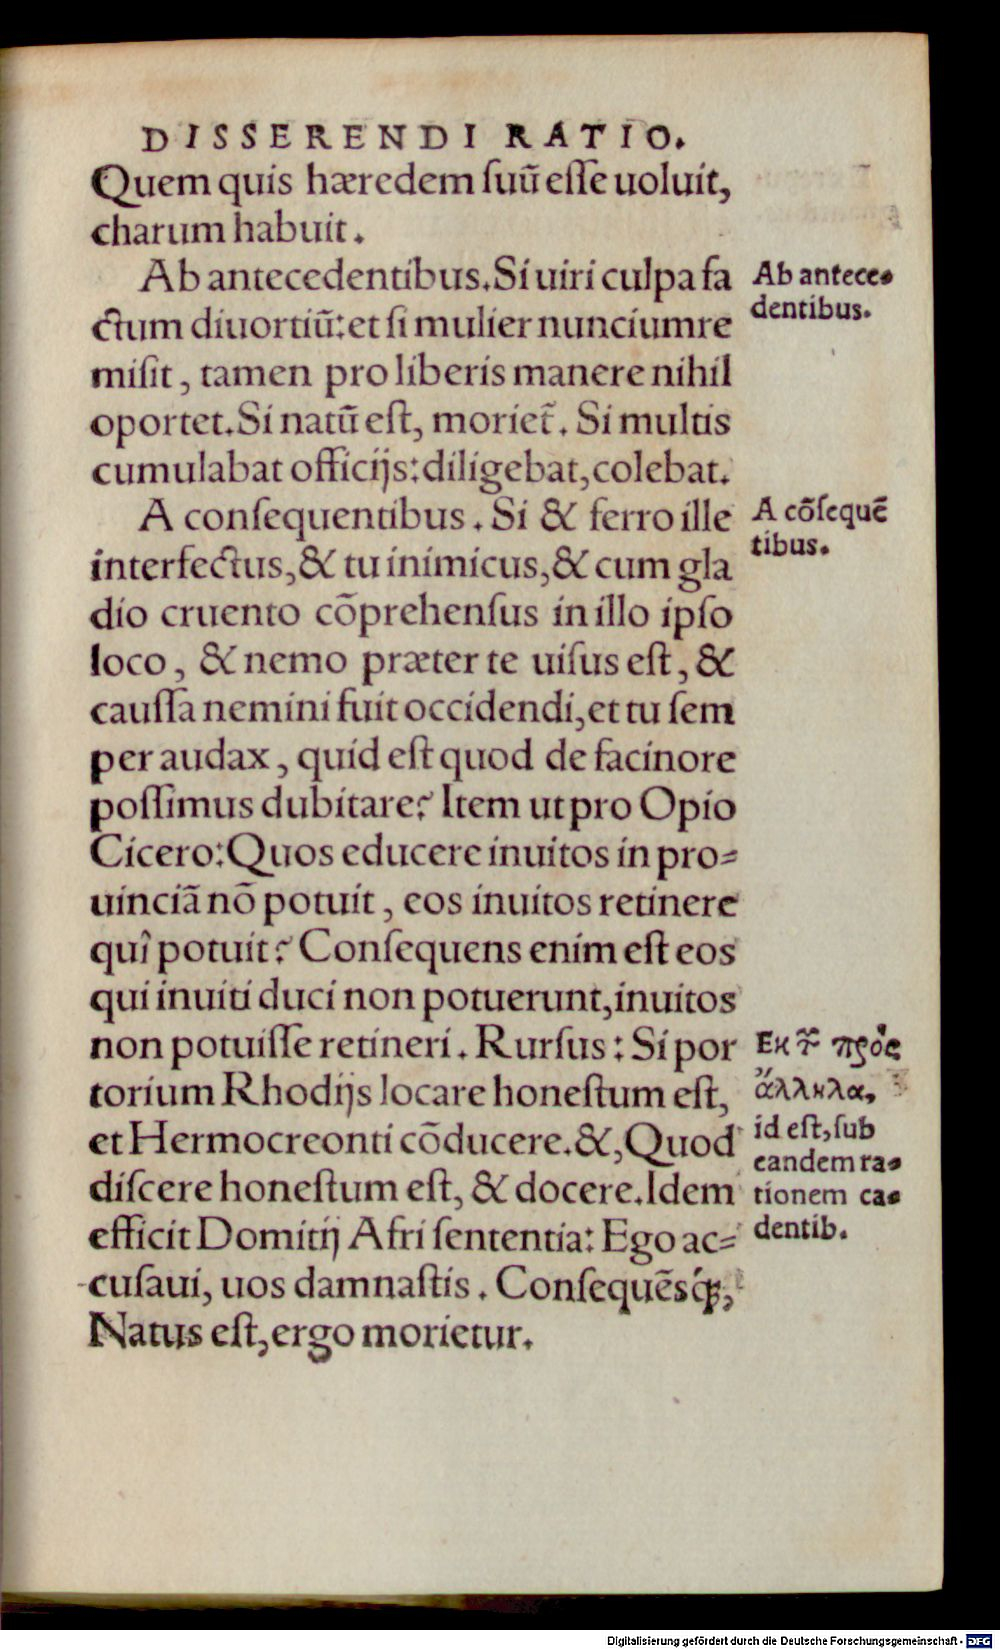 DISSERENDI RATIO.
Quem quis hæredem ſuũ eſſe uoluit,
charum habuit.
Ab antecedentibus. Si uiri culpa fa
ctum diuortiũ: et ſi mulier nuncium re
miſit, tamen pro liberis manere nihil
oportet. Si natũ eſt, moriet̃. Si multis
cumulabat officijs: diligebat, colebat.
A conſequentibus. Si & ferro ille
interfectus, & tu inimicus, & cum gla
dio cruento cõprehenſus in illo ipſo
loco, & nemo præter te uiſus eſt, &
cauſſa nemini fuit occidendi, et tu ſem
per audax, quid eſt quod de facinore
poſſimus dubitare? Item ut pro Opio
Cicero: Quos educere inuitos in pro-
uinciã nõ potuit, eos inuitos retinere
quî potuit? Conſequens enim eſt eos
qui inuiti duci non potuerunt, inuitos
non potuiſſe retineri. Rurſus: Si por
torium Rhodijs locare honeſtum eſt,
et Hermocreonti cõducere. &, Quod
diſcere honeſtum eſt, & docere. Idem
efficit Domitij Afri ſententia: Ego ac-
cuſaui, uos damnaſtis. Conſequẽsq́;,
Natus eſt, ergo morietur.
Ab antece-
dentibus.
A cõſequẽ
tibus.
Εκ τ̃ πρὸς
ἄλληλα,
id eſt, ſub
eandem ra-
tionem ca-
dentib.
Digitalisierung gefördert durch die Deutsche Forschungsgemeinschaft - DFG